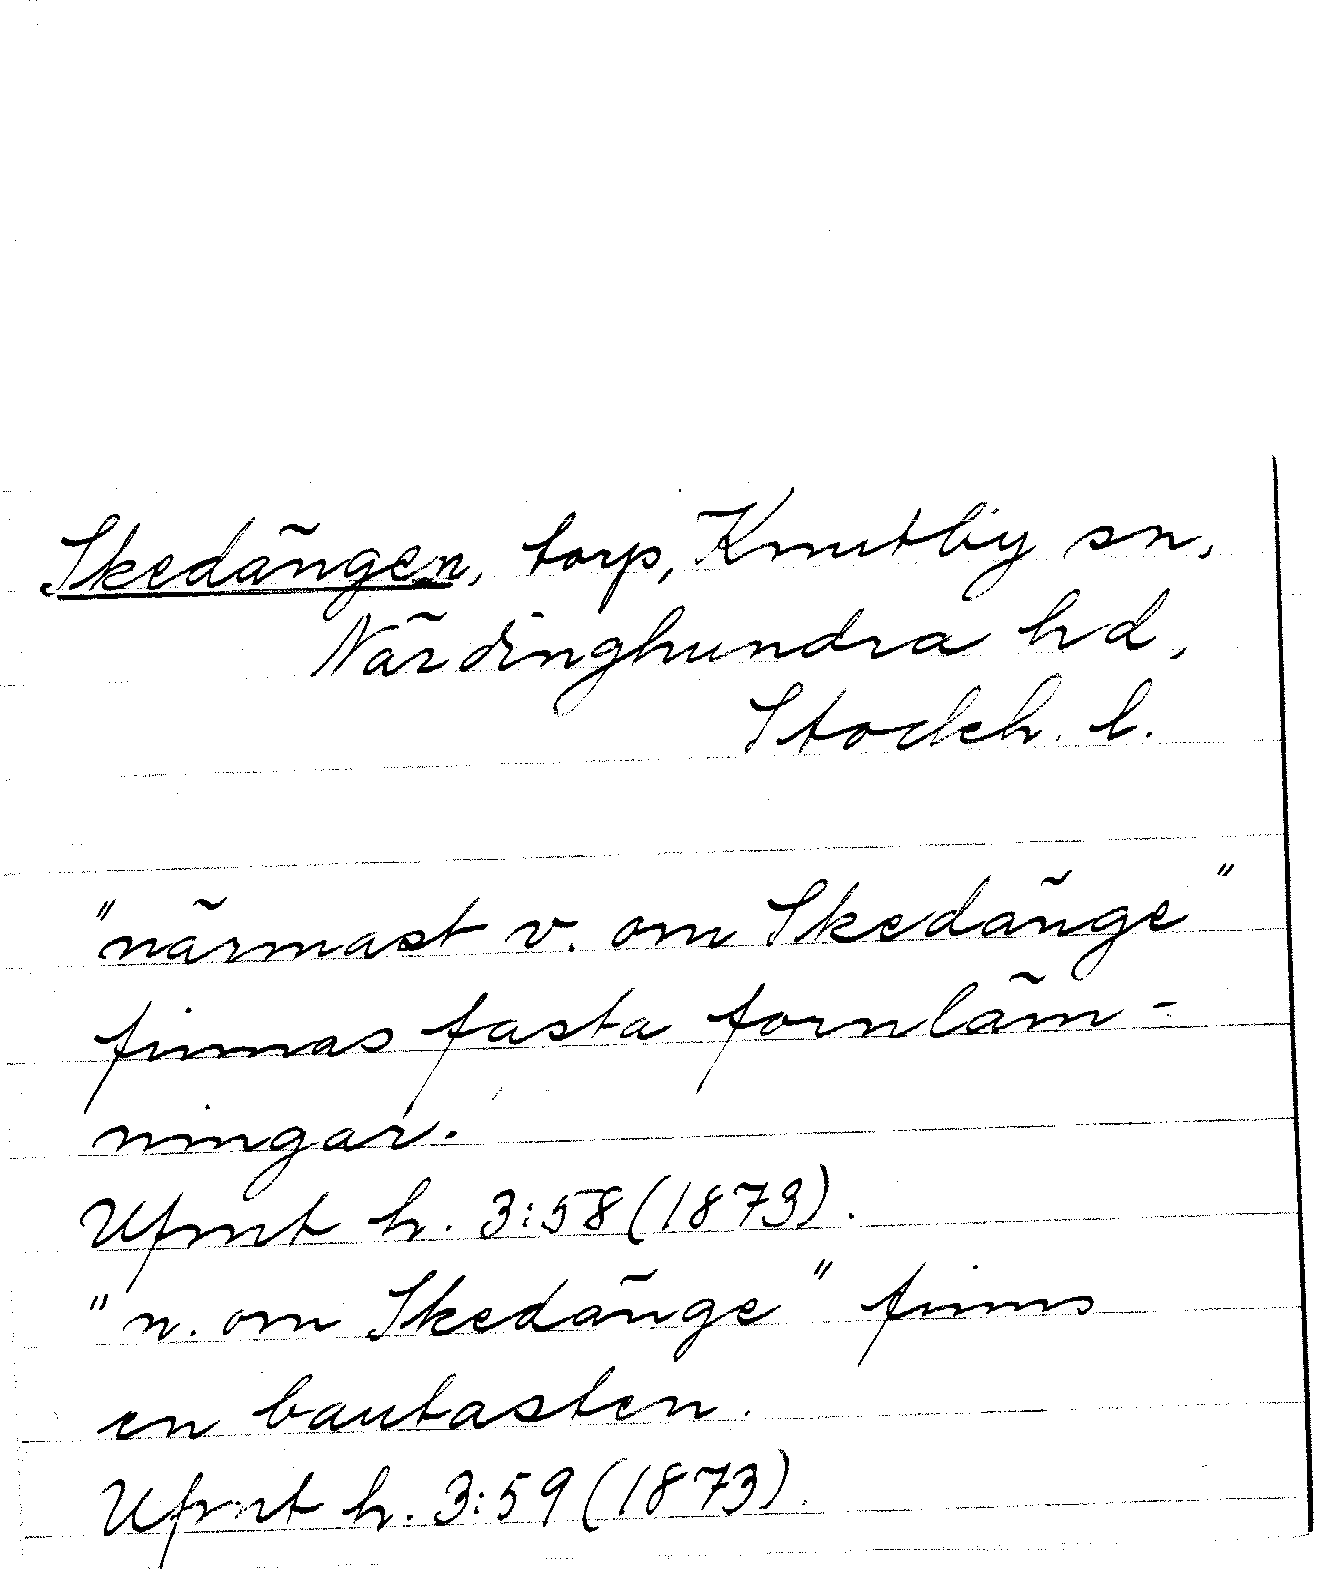 Skedängen, torp, Knutby sn,
Närdinghundra hd,
Stockh. l.
"närmast v. om Skedänge"
finnas fasta fornläm-
ningar.
Ufmt h. 3:58 (1873).
"n. om Skedänge" finns
en bautasten.
Ufmt h. 3:59 (1873).